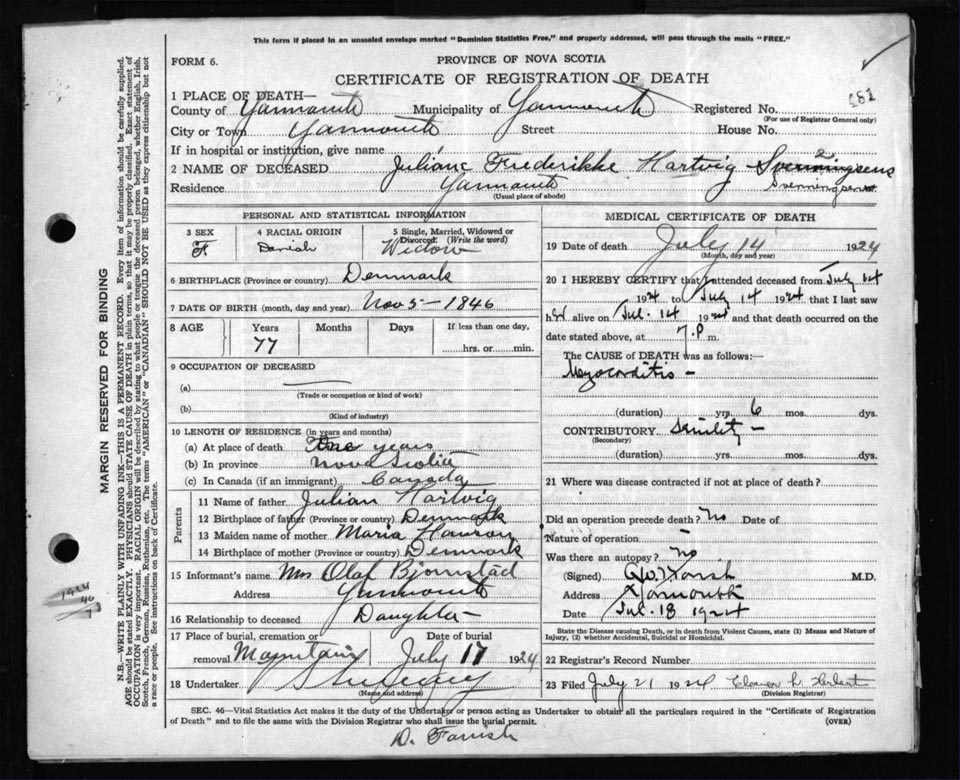 This form if placed in an unsealed envelope marked "Dominion Statistics Free," and properly addressed, will pass through the mails "FREE."
FORM 6.
PROVINCE OF NOVA SCOTIA
CERTIFICATE OF REGISTRATION OF DEATH
1 PLACE OF DEATH—
County of Yarmouth Municipality of Yarmouth Registered No.
(For use of Registrar General only)
City or Town Yarmouth Street House No.
If in hospital or institution, give name
2 NAME OF DECEASED Juliane Frederikke Hartvig Svenningsens
Svenningsen
Residence Yarmouth
(Usual place of abode)
PERSONAL AND STATISTICAL INFORMATION
3 SEX 4 RACIAL ORIGIN 5 Single, Married, Widowed or
Divorced: (Write the word)
F Danish Widow
6 BIRTHPLACE (Province or country) Denmark
7 DATE OF BIRTH (month, day and year) Nov 5 - 1846
8 AGE Years Months Days If less than one day,
77 hrs. or min.
9 OCCUPATION OF DECEASED
(a)
(Trade or occupation or kind of work)
(b)
(Kind of industry)
10 LENGTH OF RESIDENCE (in years and months)
(a) At place of death years
(b) In province Nova Scotia
(c) In Canada (if an immigrant) Canada
Parents
11 Name of father Julian Hartvig
12 Birthplace of father (Province or country) Denmark
13 Maiden name of mother Maria
14 Birthplace of mother (Province or country) Denmark
15 Informant's name Mrs Olaf Bjornstad
Address Yarmouth
16 Relationship to deceased Daughter
17 Place of burial, cremation or Date of burial
removal Mountain July 17 1924
18 Undertaker
(Name and address)
MEDICAL CERTIFICATE OF DEATH
19 Date of death July 14 1924
(Month, day and year)
20 I HEREBY CERTIFY that I attended deceased from July 1st
1924 to July 14 1924 that I last saw
her alive on Jul. 14 1924 and that death occurred on the
date stated above, at 7.P m.
The CAUSE of DEATH was as follows:—
Myocarditis -
(duration) yrs. 6 mos. dys.
CONTRIBUTORY Senility -
(Secondary)
(duration) yrs. mos. dys.
21 Where was disease contracted if not at place of death?
Did an operation precede death? No Date of
Nature of operation
Was there an autopsy? No
(Signed) Farish M.D.
Address Yarmouth
Date Jul. 18 1924
State the Disease causing Death, or in death from Violent Causes, state (1) Means and Nature of
Injury, (2) whether Accidental, Suicidal or Homicidal.
22 Registrar's Record Number
23 Filed July 21 1924
(Division Registrar)
SEC. 46—Vital Statistics Act makes it the duty of the Undertaker or person acting as Undertaker to obtain all the particulars required in the "Certificate of Registration
of Death" and to file the same with the Division Registrar who shall issue the burial permit. (OVER)
D. Farish
MARGIN RESERVED FOR BINDING
N.B.—WRITE PLAINLY WITH UNFADING INK—THIS IS A PERMANENT RECORD. Every item of information should be carefully supplied.
AGE should be stated EXACTLY. PHYSICIANS should STATE CAUSE OF DEATH in plain terms, so that it may be properly classified. Exact statement of
OCCUPATION is very important. RACIAL ORIGIN will be described by stating to what people or tongue the deceased person belonged, whether English, Irish,
Scotch, French, German, Russian, Ruthenian, etc. The terms "AMERICAN" or "CANADIAN" SHOULD NOT BE USED as they express citizenship but not
a race or people. See instructions on back of Certificate.
1924
46
78